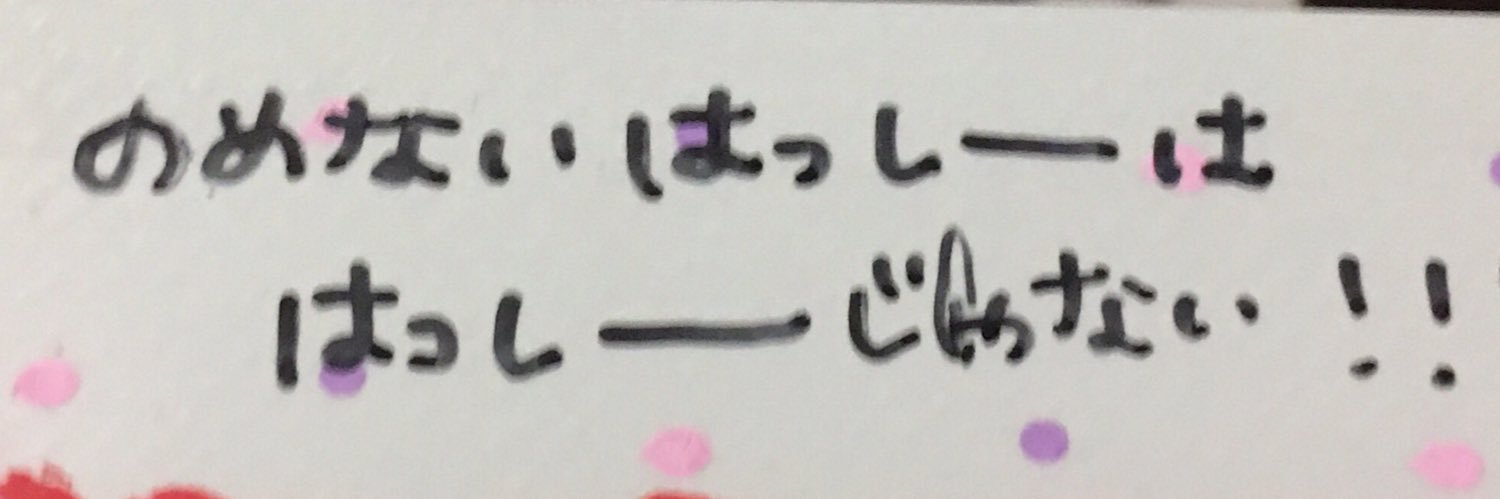 のめないはっしーは
はっしーじゃない!!